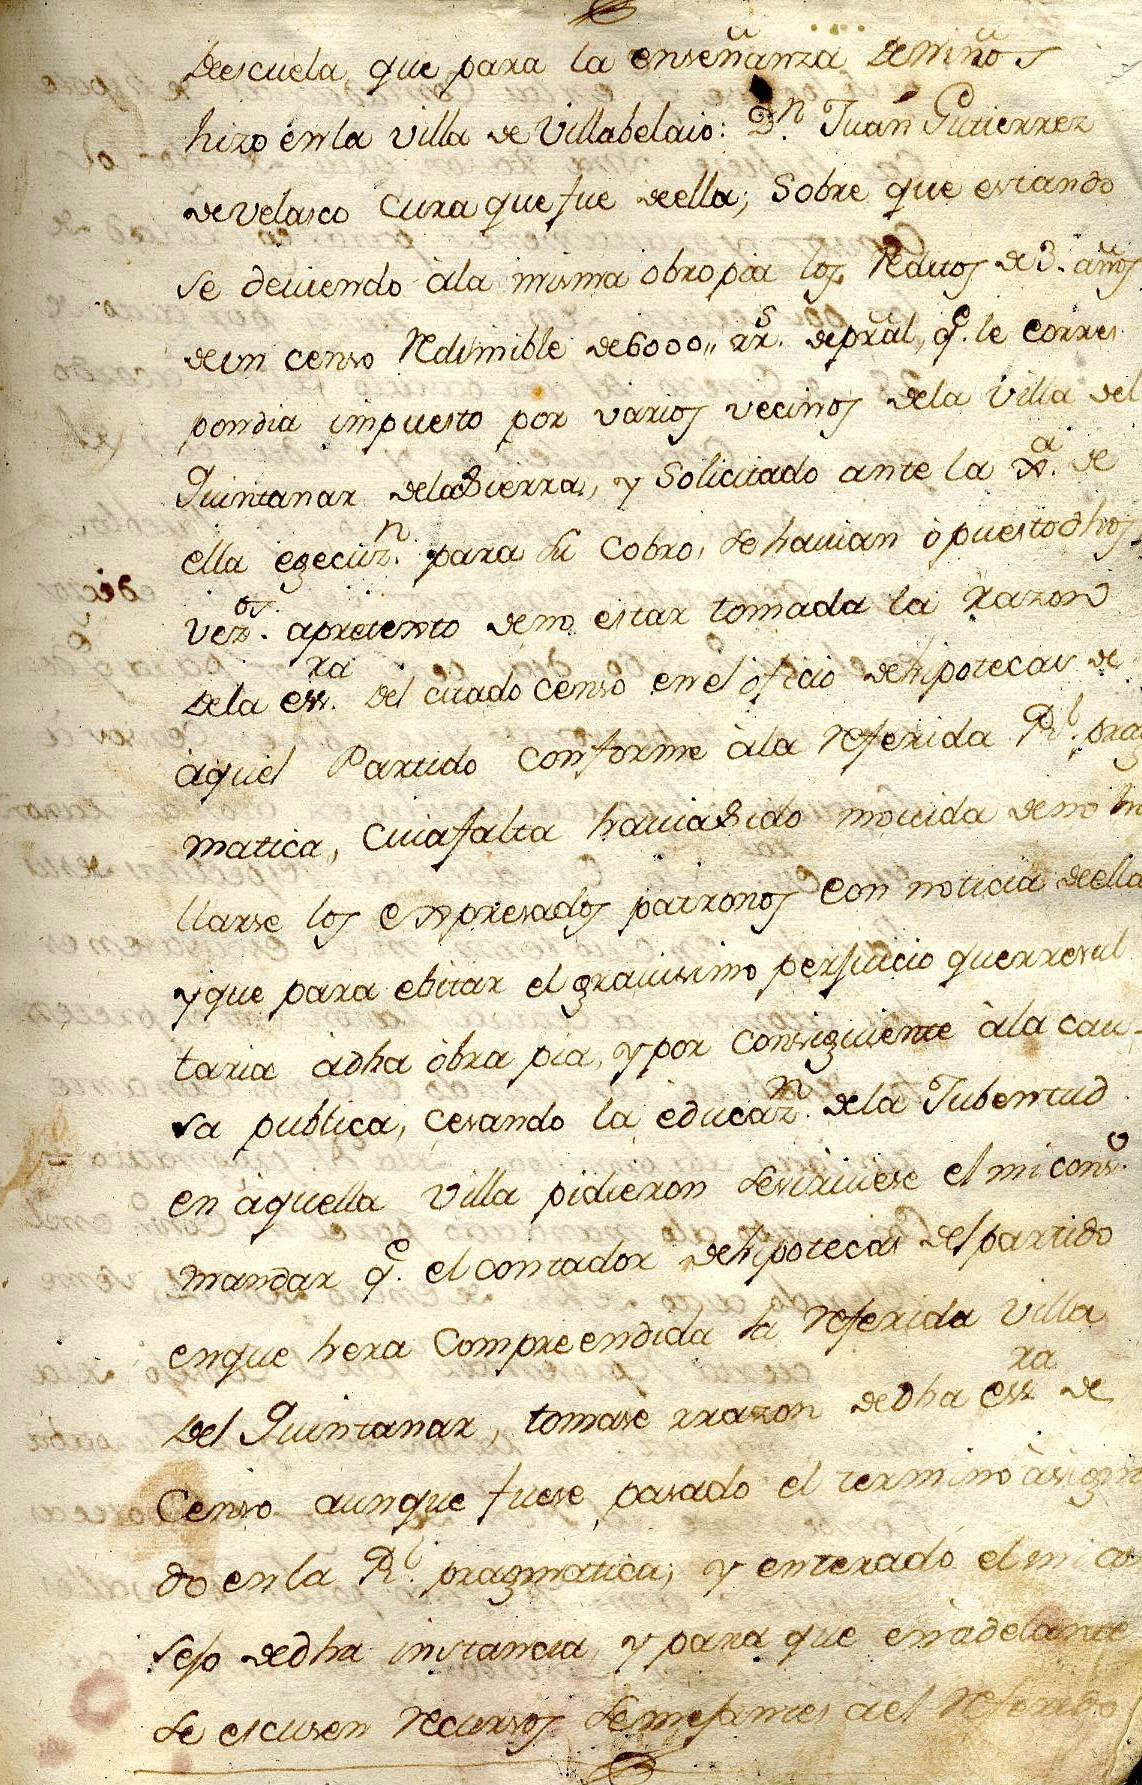 de escuela que para la enseñanza de niños
hizo en la villa de Villabelaio: Dn. Juan Gutierrez
de Velasco Cura que fue de ella; Sobre que estando
se deviendo à la misma obra pia los Reditos de 3. años
de un censo Redimible de 6000,, rrs. de pral, qe. le corres
pondia impuesto por varios vecinos de la Villa del
Quintanar de la Sierra, y Solicitado ante la Xa. de
ella egecuzn. para su Cobro, se havian òpuesto dhos
vezos. a pretexto de no estar tomada la razon
de la essra. del citado Censo en el òficio de hipotecas de
àquel Partido Conforme à la referida Rl. prag
matica, Cuia falta havia Sido nacida de no ha
llarse los expresados patronos con noticia de ella
y que para ebitar el gravisimo perjuicio que rresul
taria à dha òbra pia, y por Consiguiente à la cau
sa publica, Cesando la èducazn. de la Jubentud
en àquella Villa pidieron se sirviese el mi Conso.
mandar qe. el contador de hipotecas del partido
en que hera Compreendida la referida Villa
del Quintanar, tomase rrazon de dha essra de
Censo aunque fuese pasado el termino àsigna
do en la Rl. pragmatica; y enterado el mi Con
sejo de dha instancia, y para que en adelante
se escusen recursos semejantes àel referido